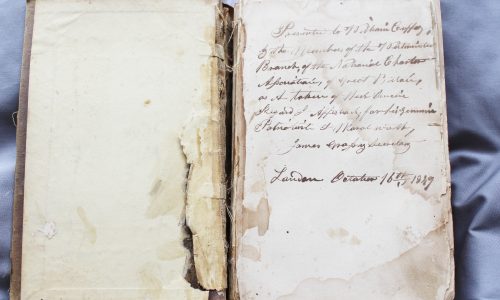 Presented to Wm Cuffay
By the Members of the Westminster
Branch, of the National Charter
Association of Great Britain,
as A token of their sincere
Regard & Approval, for his genuine
Patriotism & Moral worth,
James Grassby Secretary
London October 16th 1849